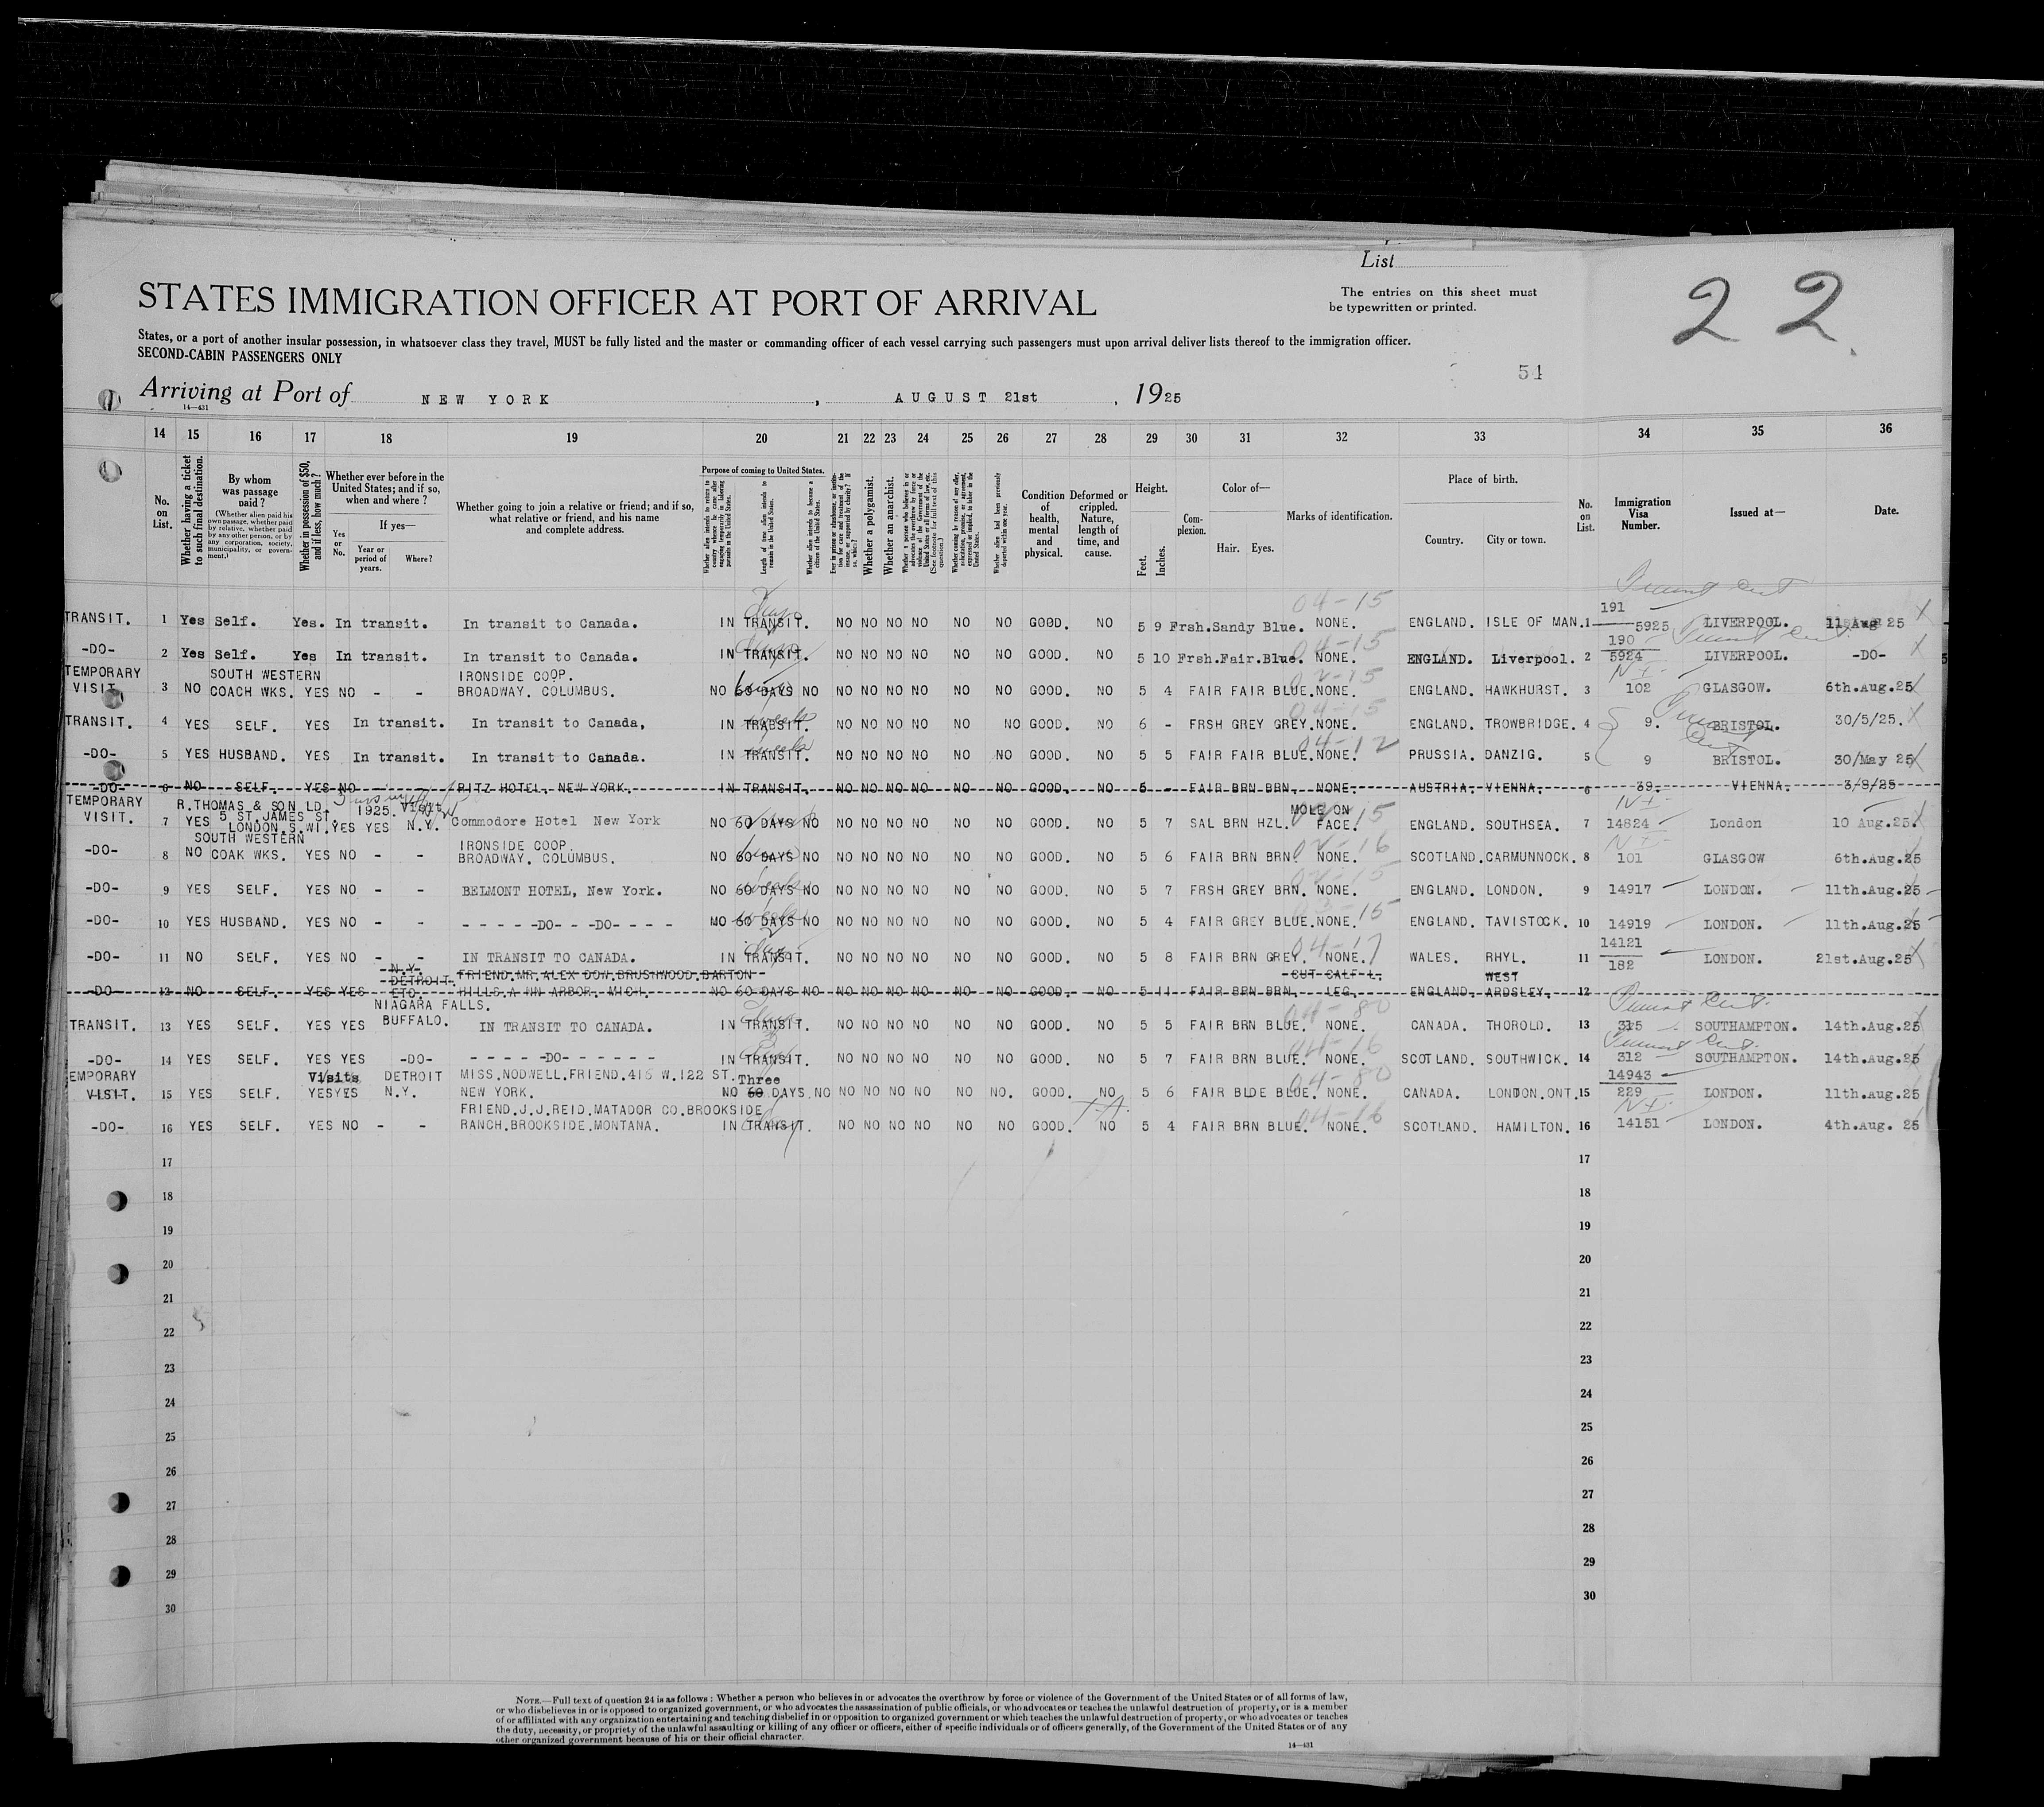 List
STATES IMMIGRATION OFFICER AT PORT OF ARRIVAL
The entries on this sheet must
be typewritten or printed.
22
States, or a port of another insular possession, in whatsoever class they travel, MUST be fully listed and the master or commanding officer of each vessel carrying such passengers must upon arrival deliver lists thereof to the immigration officer.
SECOND-CABIN PASSENGERS ONLY
54
Arriving at Port of NEW YORK, AUGUST 21st, 1925
14—431
14 15 16 17 18 19 20 21 22 23 24 25 26 27 28 29 30 31 32 33 34 35 36
No. on List.
Whether having a ticket to such final destination.
By whom was passage paid?
(Whether alien paid his own passage, whether paid by relative, whether paid by any other person, or by any corporation, society, municipality, or government.)
Whether in possession of $50, and if less, how much?
Whether ever before in the United States; and if so, when and where?
Yes or No.
If yes—
Year or period of years.
Where?
Whether going to join a relative or friend; and if so, what relative or friend, and his name and complete address.
Purpose of coming to United States.
Length of time alien intends to remain in the United States.
Whether alien intends to become a citizen of the United States.
Whether a polygamist.
Whether an anarchist.
Condition of health, mental and physical.
Deformed or crippled. Nature, length of time, and cause.
Height.
Feet.
Inches.
Complexion.
Color of—
Hair. Eyes.
Marks of identification.
Place of birth.
Country. City or town.
No. on List.
Immigration Visa Number.
Issued at—
Date.
TRANSIT. 1 Yes Self. Yes. In transit. In transit to Canada. IN TRANSIT. NO NO NO NO NO NO GOOD. NO 5 9 Frsh. Sandy Blue. NONE. 04-15 ENGLAND. ISLE OF MAN. 1 191 5925 LIVERPOOL. 11 Aug 25
-DO- 2 Yes Self. Yes In transit. In transit to Canada. IN TRANSIT. NO NO NO NO NO NO GOOD. NO 5 10 Frsh. Fair. Blue. NONE. 04-15 ENGLAND. Liverpool. 2 190 5924 LIVERPOOL. -DO-
TEMPORARY VISIT 3 NO SOUTH WESTERN COACH WKS. YES NO - - IRONSIDE COOP. BROADWAY. COLUMBUS. NO 60 DAYS NO NO NO NO NO NO NO GOOD. NO 5 4 FAIR FAIR BLUE. NONE. ENGLAND. HAWKHURST. 3 102 GLASGOW. 6th.Aug.25
TRANSIT. 4 YES SELF. YES In transit. In transit to Canada, IN TRANSIT. NO NO NO NO NO NO GOOD. NO 6 - FRSH GREY GREY. NONE. 04-15 ENGLAND. TROWBRIDGE. 4 9. BRISTOL. 30/5/25.
-DO- 5 YES HUSBAND. YES In transit. In transit to Canada. IN TRANSIT. NO NO NO NO NO NO GOOD. NO 5 5 FAIR FAIR BLUE. NONE. 04-12 PRUSSIA. DANZIG. 5 9 BRISTOL. 30/May 25
-DO- 6 NO SELF. YES NO - RITZ HOTEL. NEW YORK. IN TRANSIT. NO NO NO NO NO NO GOOD. NO 5 - FAIR BRN BRN. NONE. AUSTRIA. VIENNA. 6 39. VIENNA. 3/8/25
TEMPORARY VISIT. 7 YES R.THOMAS & SON LD. 5 ST.JAMES ST. LONDON.S.W1. YES YES 1925. Visit N.Y. Commodore Hotel New York NO 60 DAYS NO NO NO NO NO NO NO GOOD. NO 5 7 SAL BRN HZL. MOLE ON FACE. ENGLAND. SOUTHSEA. 7 14824 London 10 Aug.25
-DO- 8 NO SOUTH WESTERN COAK WKS. YES NO - - IRONSIDE COOP. BROADWAY. COLUMBUS. NO 60 DAYS NO NO NO NO NO NO NO GOOD. NO 5 6 FAIR BRN BRN. NONE. SCOTLAND. CARMUNNOCK. 8 101 GLASGOW 6th.Aug.25
-DO- 9 YES SELF. YES NO - - BELMONT HOTEL, New York. NO 60 DAYS NO NO NO NO NO NO NO GOOD. NO 5 7 FRSH GREY BRN. NONE. ENGLAND. LONDON. 9 14917 LONDON. 11th.Aug.25
-DO- 10 YES HUSBAND. YES NO - - - - - - -DO- - -DO- - - - MO 60 DAYS NO NO NO NO NO NO NO GOOD. NO 5 4 FAIR GREY BLUE. NONE. ENGLAND. TAVISTOCK. 10 14919 LONDON. 11th.Aug.25
-DO- 11 NO SELF. YES NO - - IN TRANSIT TO CANADA. IN TRANSIT. NO NO NO NO NO NO GOOD. NO 5 8 FAIR BRN GREY. NONE. 04-17 WALES. RHYL. 11 14121 182 LONDON. 21st.Aug.25
-DO- 12 NO SELF. YES YES N.Y. DETROIT. ETC. FRIEND.MR.ALEX DOW.BRUSHWOOD.BARTON HILLS.A NN ARBOR. MICH. NO 60 DAYS NO NO NO NO NO NO NO GOOD. NO 5 11 FAIR BRN BRN. CUT CALF L. LEG. ENGLAND. WEST ARDSLEY. 12
TRANSIT. 13 YES SELF. YES YES NIAGARA FALLS. BUFFALO. IN TRANSIT TO CANADA. IN TRANSIT. NO NO NO NO NO NO GOOD. NO 5 5 FAIR BRN BLUE. NONE. 04-80 CANADA. THOROLD. 13 315 SOUTHAMPTON. 14th.Aug.25
-DO- 14 YES SELF. YES YES -DO- - - - - -DO- - - - - - - IN TRANSIT. NO NO NO NO NO NO GOOD. NO 5 7 FAIR BRN BLUE. NONE. 04-16 SCOTLAND. SOUTHWICK. 14 312 SOUTHAMPTON. 14th.Aug.25
EMPORARY VISIT. 15 YES SELF. YES YES Visits DETROIT N.Y. MISS.NODWELL.FRIEND.416 W.122 ST. NEW YORK. NO Three 60 DAYS NO NO NO NO NO NO NO. GOOD. NO 5 6 FAIR BLDE BLUE. NONE. 04-80 CANADA. LONDON.ONT. 15 14943 229 LONDON. 11th.Aug.25
-DO- 16 YES SELF. YES NO - - FRIEND.J.J.REID.MATADOR CO.BROOKSIDE RANCH.BROOKSIDE.MONTANA. IN TRANSIT. NO NO NO NO NO NO GOOD. NO 5 4 FAIR BRN BLUE. NONE. 04-16 SCOTLAND. HAMILTON. 16 14151 LONDON. 4th.Aug. 25
17 17
18 18
19 19
20 20
21 21
22 22
23 23
24 24
25 25
26 26
27 27
28 28
29 29
30 30
NOTE.—Full text of question 24 is as follows: Whether a person who believes in or advocates the overthrow by force or violence of the Government of the United States or of all forms of law,
or who disbelieves in or is opposed to organized government, or who advocates the assassination of public officials, or who advocates or teaches the unlawful destruction of property, or is a member
of or affiliated with any organization entertaining and teaching disbelief in or opposition to organized government or which teaches the unlawful destruction of property, or who advocates or teaches
the duty, necessity, or propriety of the unlawful assaulting or killing of any officer or officers, either of specific individuals or of officers generally, of the Government of the United States or of any
other organized government because of his or their official character.
14—431